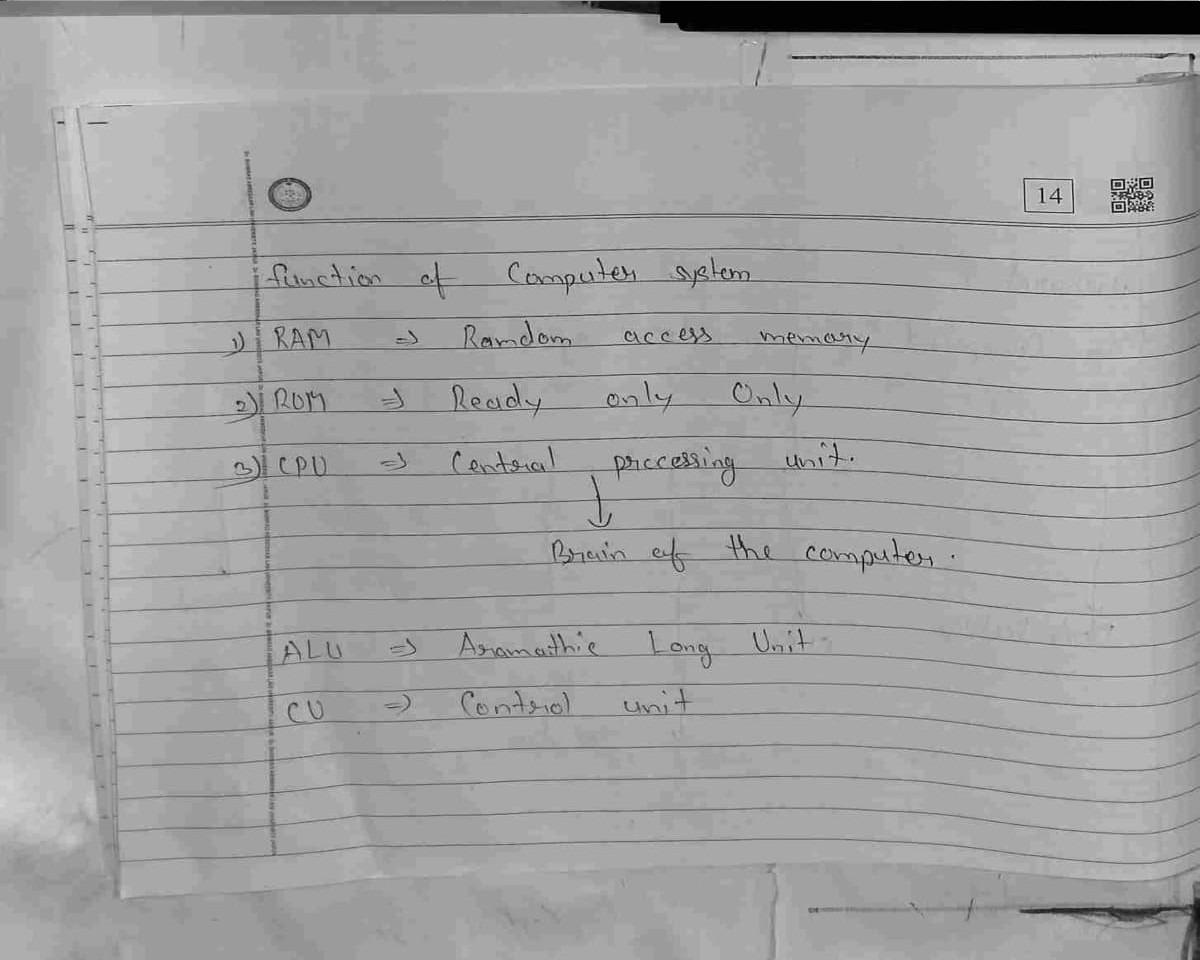 14
function of Computer system
1) RAM => Random access memory
2) ROM => Ready only Only
3) CPU => Central processing unit.
↓
Brain of the computer.
ALU => Aramathie Long Unit
CU => Control unit